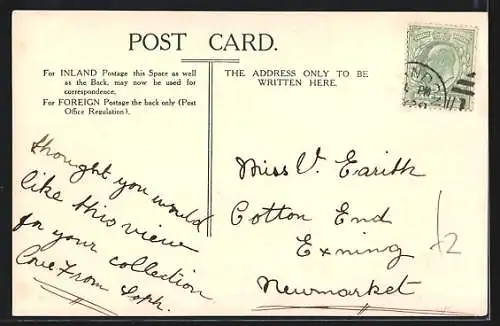 POST CARD.
For INLAND Postage this Space as well
as the Back, may now be used for
correspondence.
For FOREIGN Postage the back only (Post
Office Regulation).
THE ADDRESS ONLY TO BE
WRITTEN HERE.
thought you would
like this view
for your collection
Love From Soph.
Miss V. Earith
Cotton End
Exning
Newmarket
/2